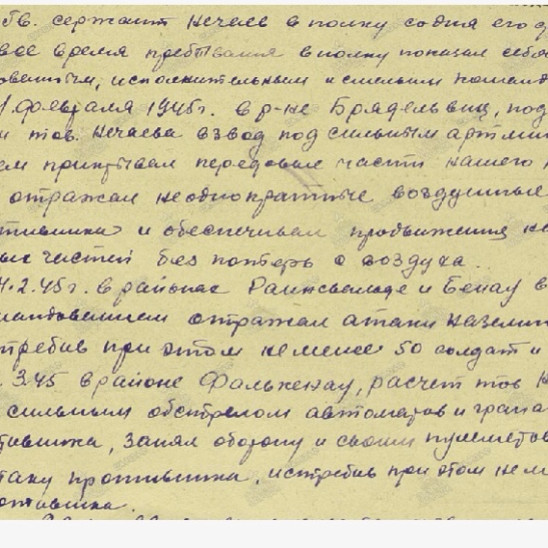 гв. сержант Нечаев в полку со дня его ф
вое время пребывания в полку показал себя
исполнительным и смелым команд
февраля 1945г. в р-не Брядельвиц, под
и тов. Нечаева взвод под сильным артмин
ем прикрывал передовые части нашего
отражал неоднократные воздушные
тивника и обеспечивал продвижения на
ных частей без потерь с воздуха.
4.2.45г. в районах Раинсвальде и Бенау в
мандованием отражал атаки наземн
требив при этом не менее 50 солдат и
.3.45 в районе Фалькенау, расчет тов Н
сильным обстрелом автоматов и грана
тивника, занял оборону и своим пулеметом
таку противника, истребив при этом не м
отивника.